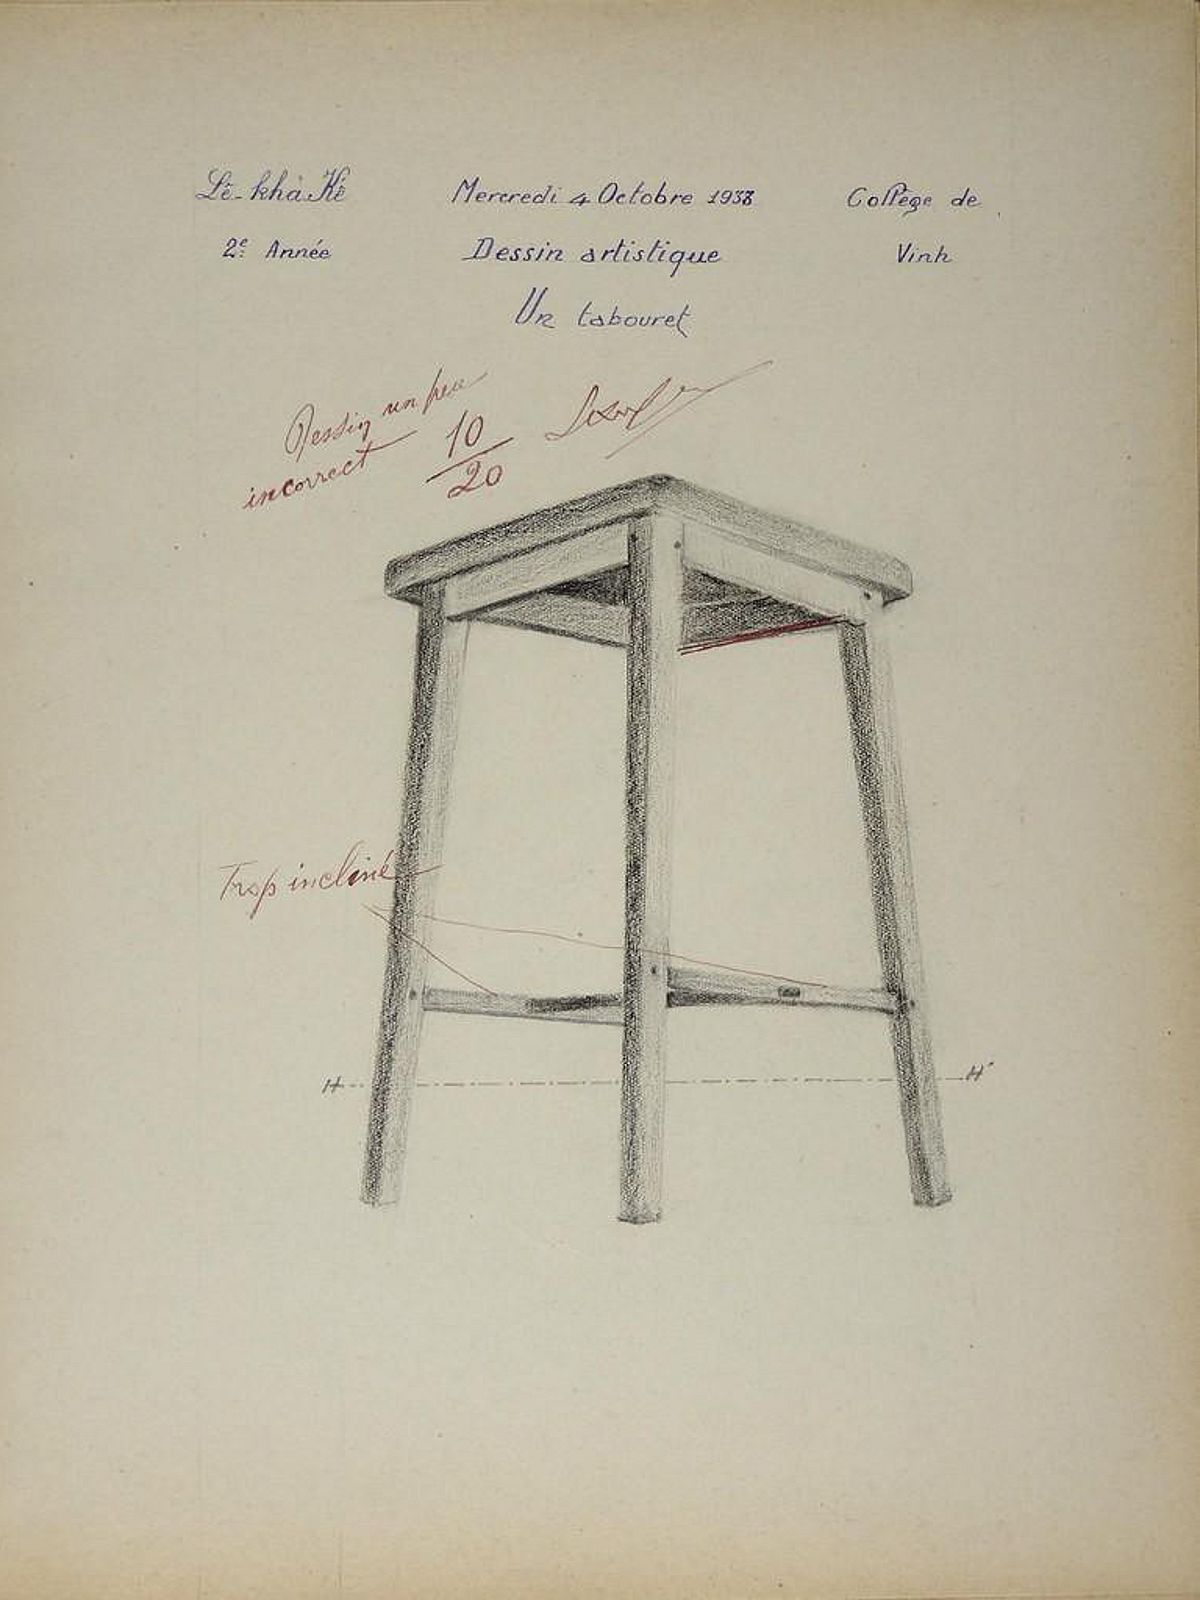 Lê-khả Kế
Mercredi 4 Octobre 1933
Collège de
2e Année
Dessin artistique
Vinh
Un tabouret
Dessin un peu
incorrect
10
20
Trop incliné
H
H'